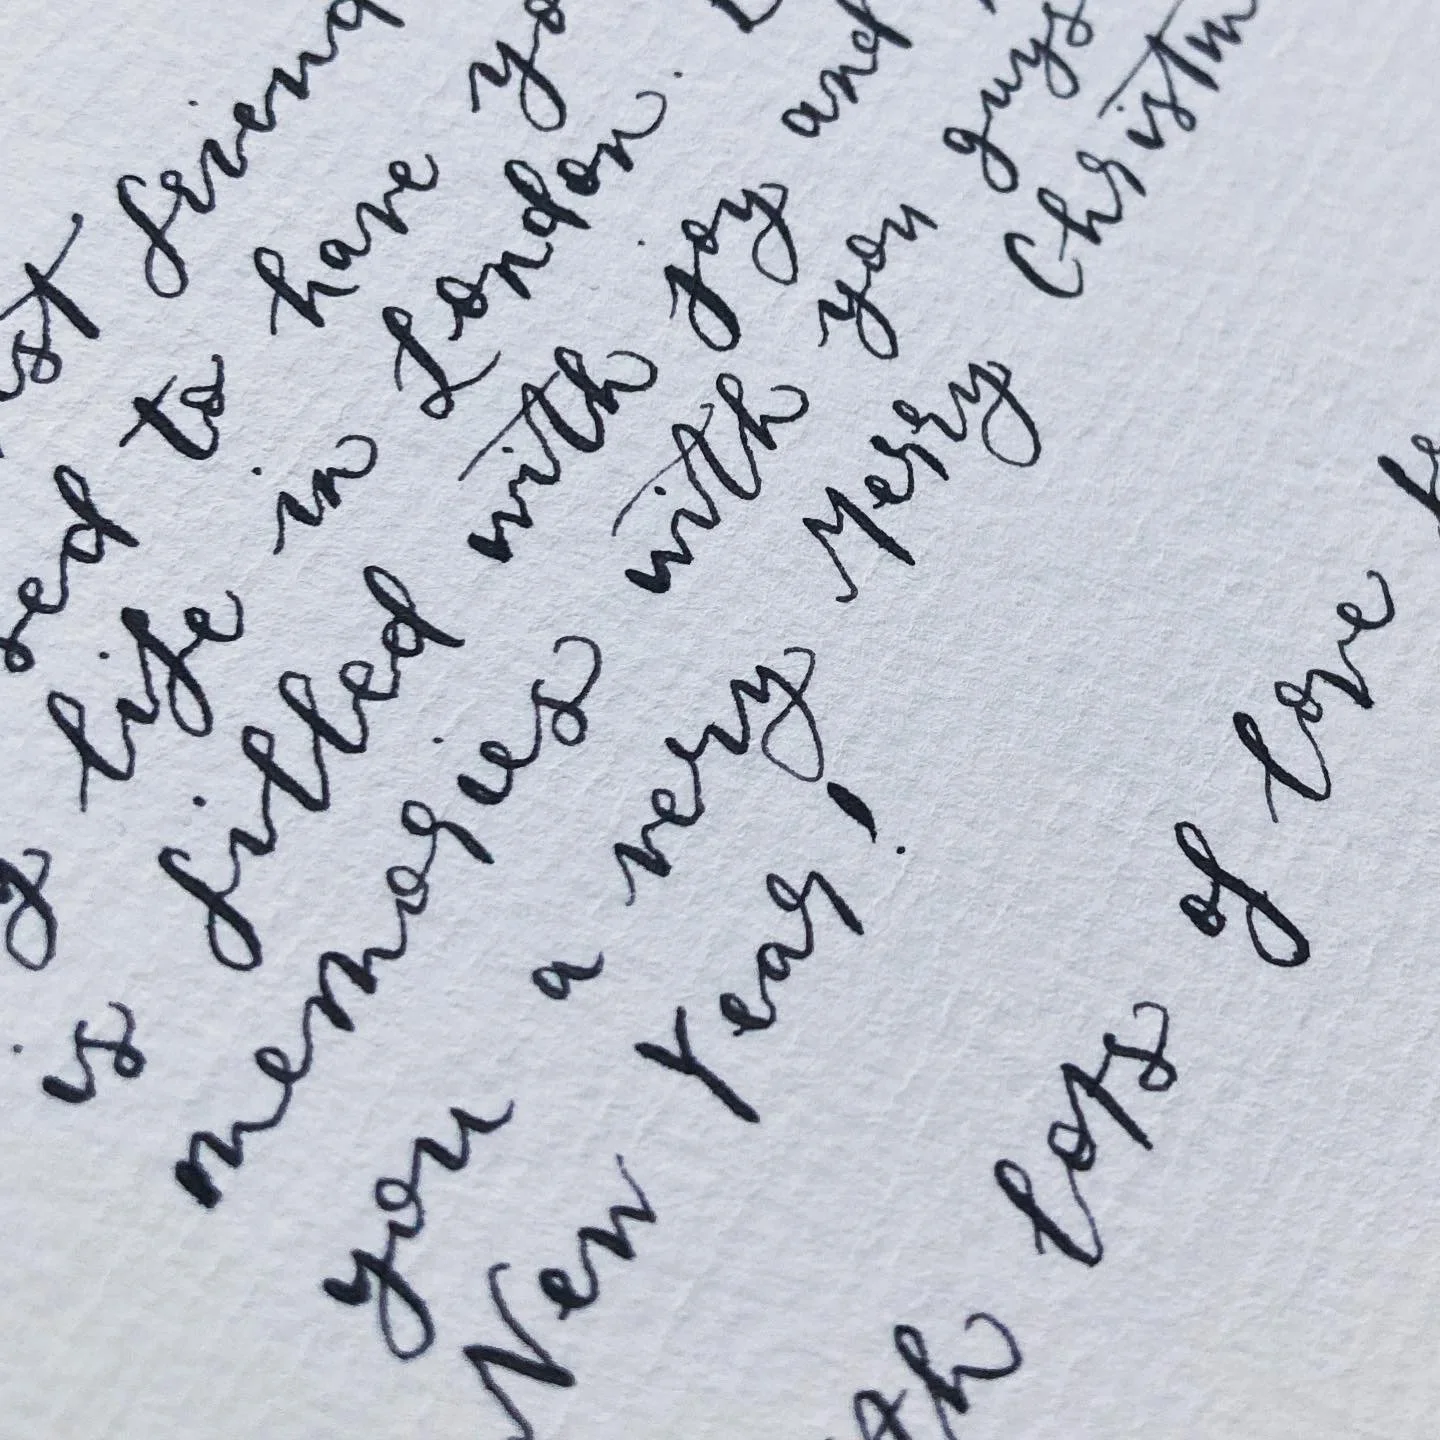 st friend
red to have yo
g life in London.
is filled with joy and
memories with you guys
you a very Merry Christm
New Year!
th lots of love